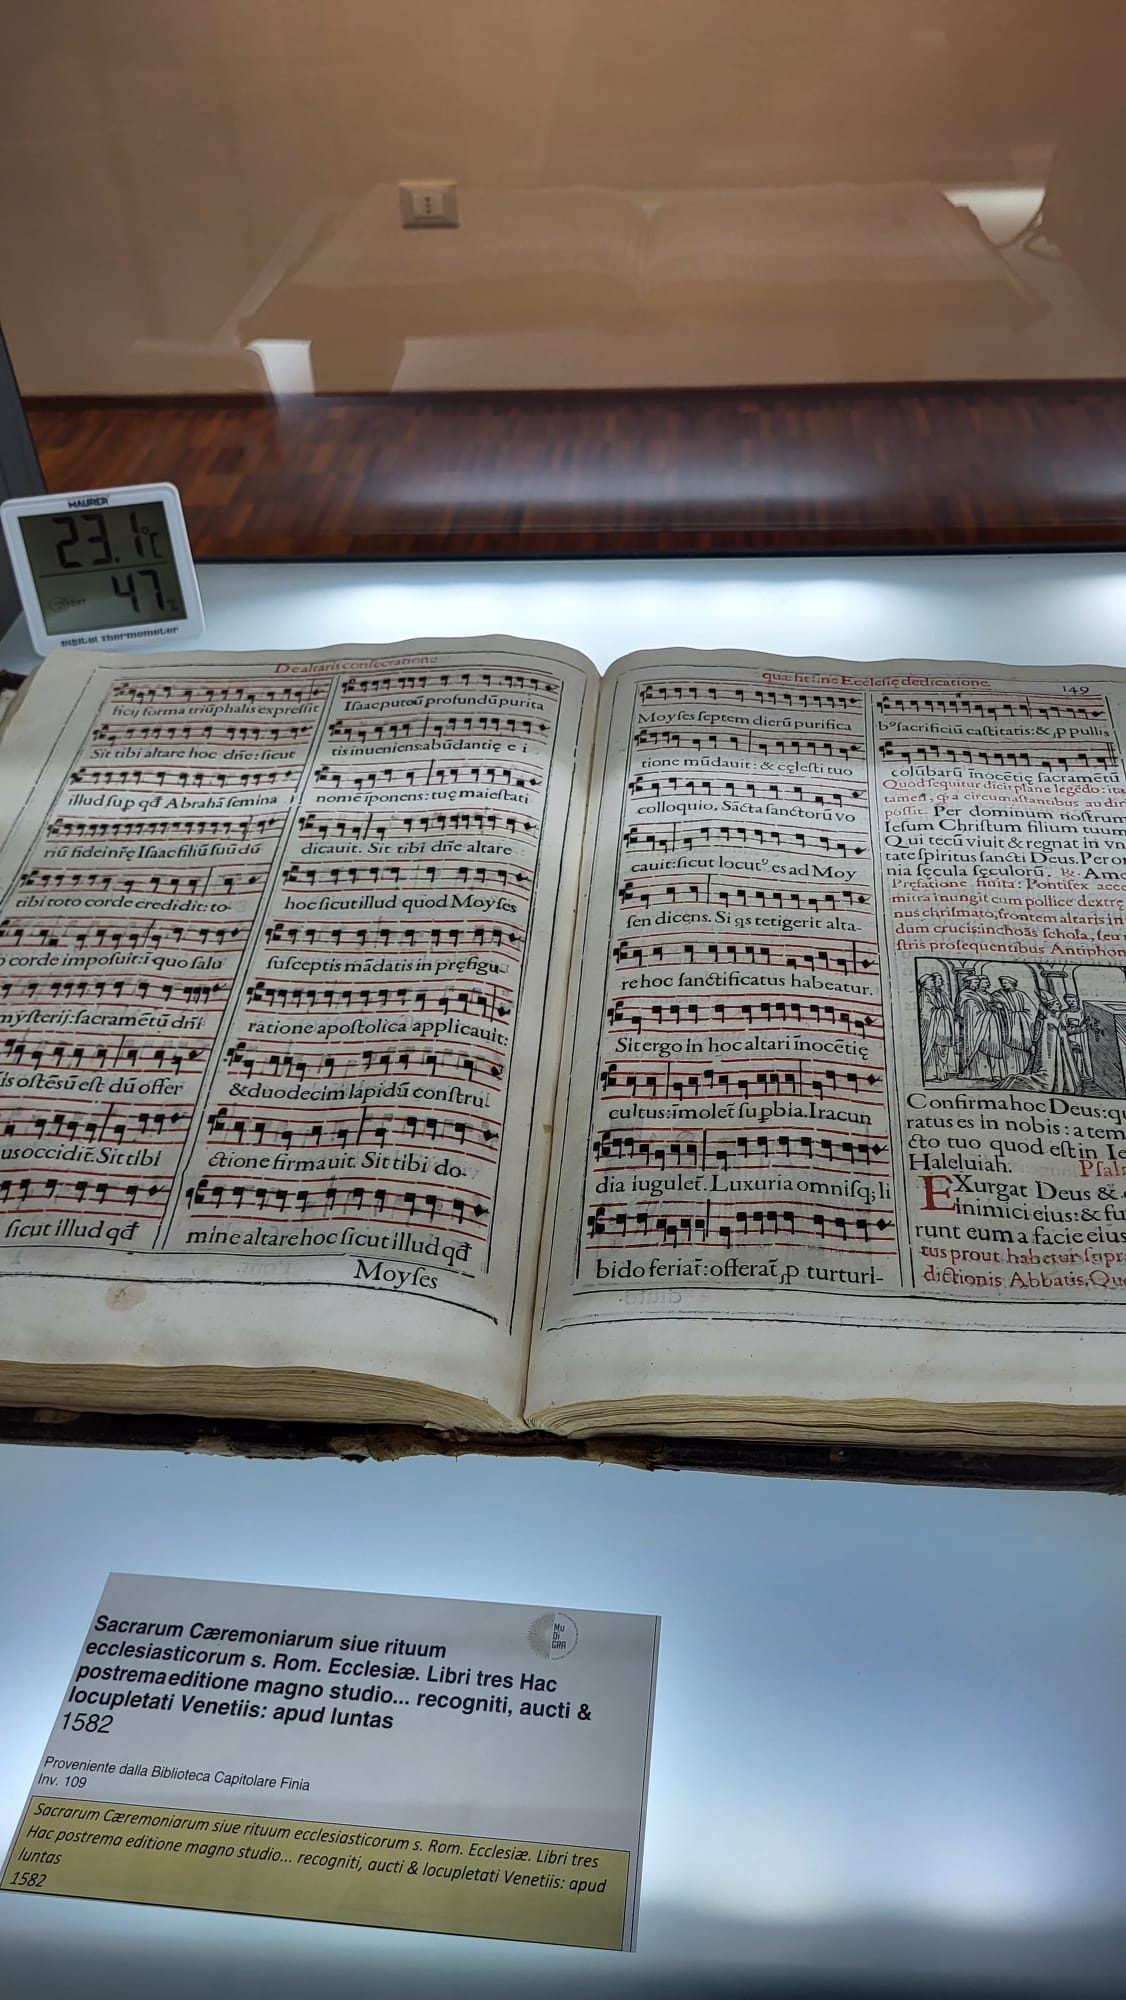 MAURER
23.1°C
47%
Digital Thermometer
De altaris consecratione
ficij forma triũphalis expressit
Sit tibi altare hoc dñe: sicut
illud sup qđ Abrahã semina
riũ fidei nr̃ę Isaac filiũ suũ dũ
tibi toto corde credidit: to-
corde imposuit: ĩ quo salu
mysterij: sacrametũ dñi
is ostẽsũ est dũ offer
us occidit̃. Sit tibi
sicut illud qđ
Isaac puteũ profundũ purita
tis inueniens: abũdantię e i
nomẽ ĩponens: tuę maiestati
dicauit. Sit tibi dñe altare
hoc sicut illud quod Moyses
susceptis mãdatis in pręfigu-
ratione apostolica applicauit:
& duodecim lapidũ constru-
ctione firmauit. Sit tibi do-
mine altare hoc sicut illud qđ
Moyses
quæ fit sine Ecclesię dedicatione.
149
Moyses septem dierũ purifica
tione mũdauit: & cęlesti tuo
colloquio, Sãcta sanctorũ vo
cauit: sicut locutꝰ es ad Moy
sen dicens. Si qs tetigerit alta-
re hoc sanctificatus habeatur.
Sit ergo in hoc altari ĩnocẽtię
cultus: imolet̃ supbia. Iracun
dia iugulet̃. Luxuria omnisq; li
bido feriat̃: offerat̃ ꝓ turturi-
bꝰ sacrificiũ castitatis: & ꝓ pullis
colũbarũ ĩnocẽtię sacramẽtũ
Quod sequitur dicit plane legẽdo: ita
tamen, ꝙ a circumstantibus audiri
possit. Per dominum nostrum
Iesum Christum filium tuum
Qui tecũ viuit & regnat in vn
tate spiritus sancti Deus. Per o
nia sęcula sęculorũ. ℟. Ame
Prefatione finita: Pontifex acce
mitra inungit cum pollice dextrę
nus chrismato, frontem altaris in
dum crucis: inchoãs schola, seu
stris prosequentibus Antiphon
Confirma hoc Deus: q
ratus es in nobis: a tem
cto tuo quod est in Ie
Haleluiah. Psal
EXurgat Deus &
inimici eius: & fu
runt eum a facie eius
tus prout habetur supr
dictionis Abbatis, Qu
Sacrarum Cæremoniarum siue rituum
ecclesiasticorum s. Rom. Ecclesiæ. Libri tres Hac
postremaeditione magno studio... recogniti, aucti &
locupletati Venetiis: apud Iuntas
1582
Mu
Di
GRA
Proveniente dalla Biblioteca Capitolare Finia
Inv. 109
Sacrarum Cæremoniarum siue rituum ecclesiasticorum s. Rom. Ecclesiæ. Libri tres
Hac postrema editione magno studio... recogniti, aucti & locupletati Venetiis: apud
Iuntas
1582